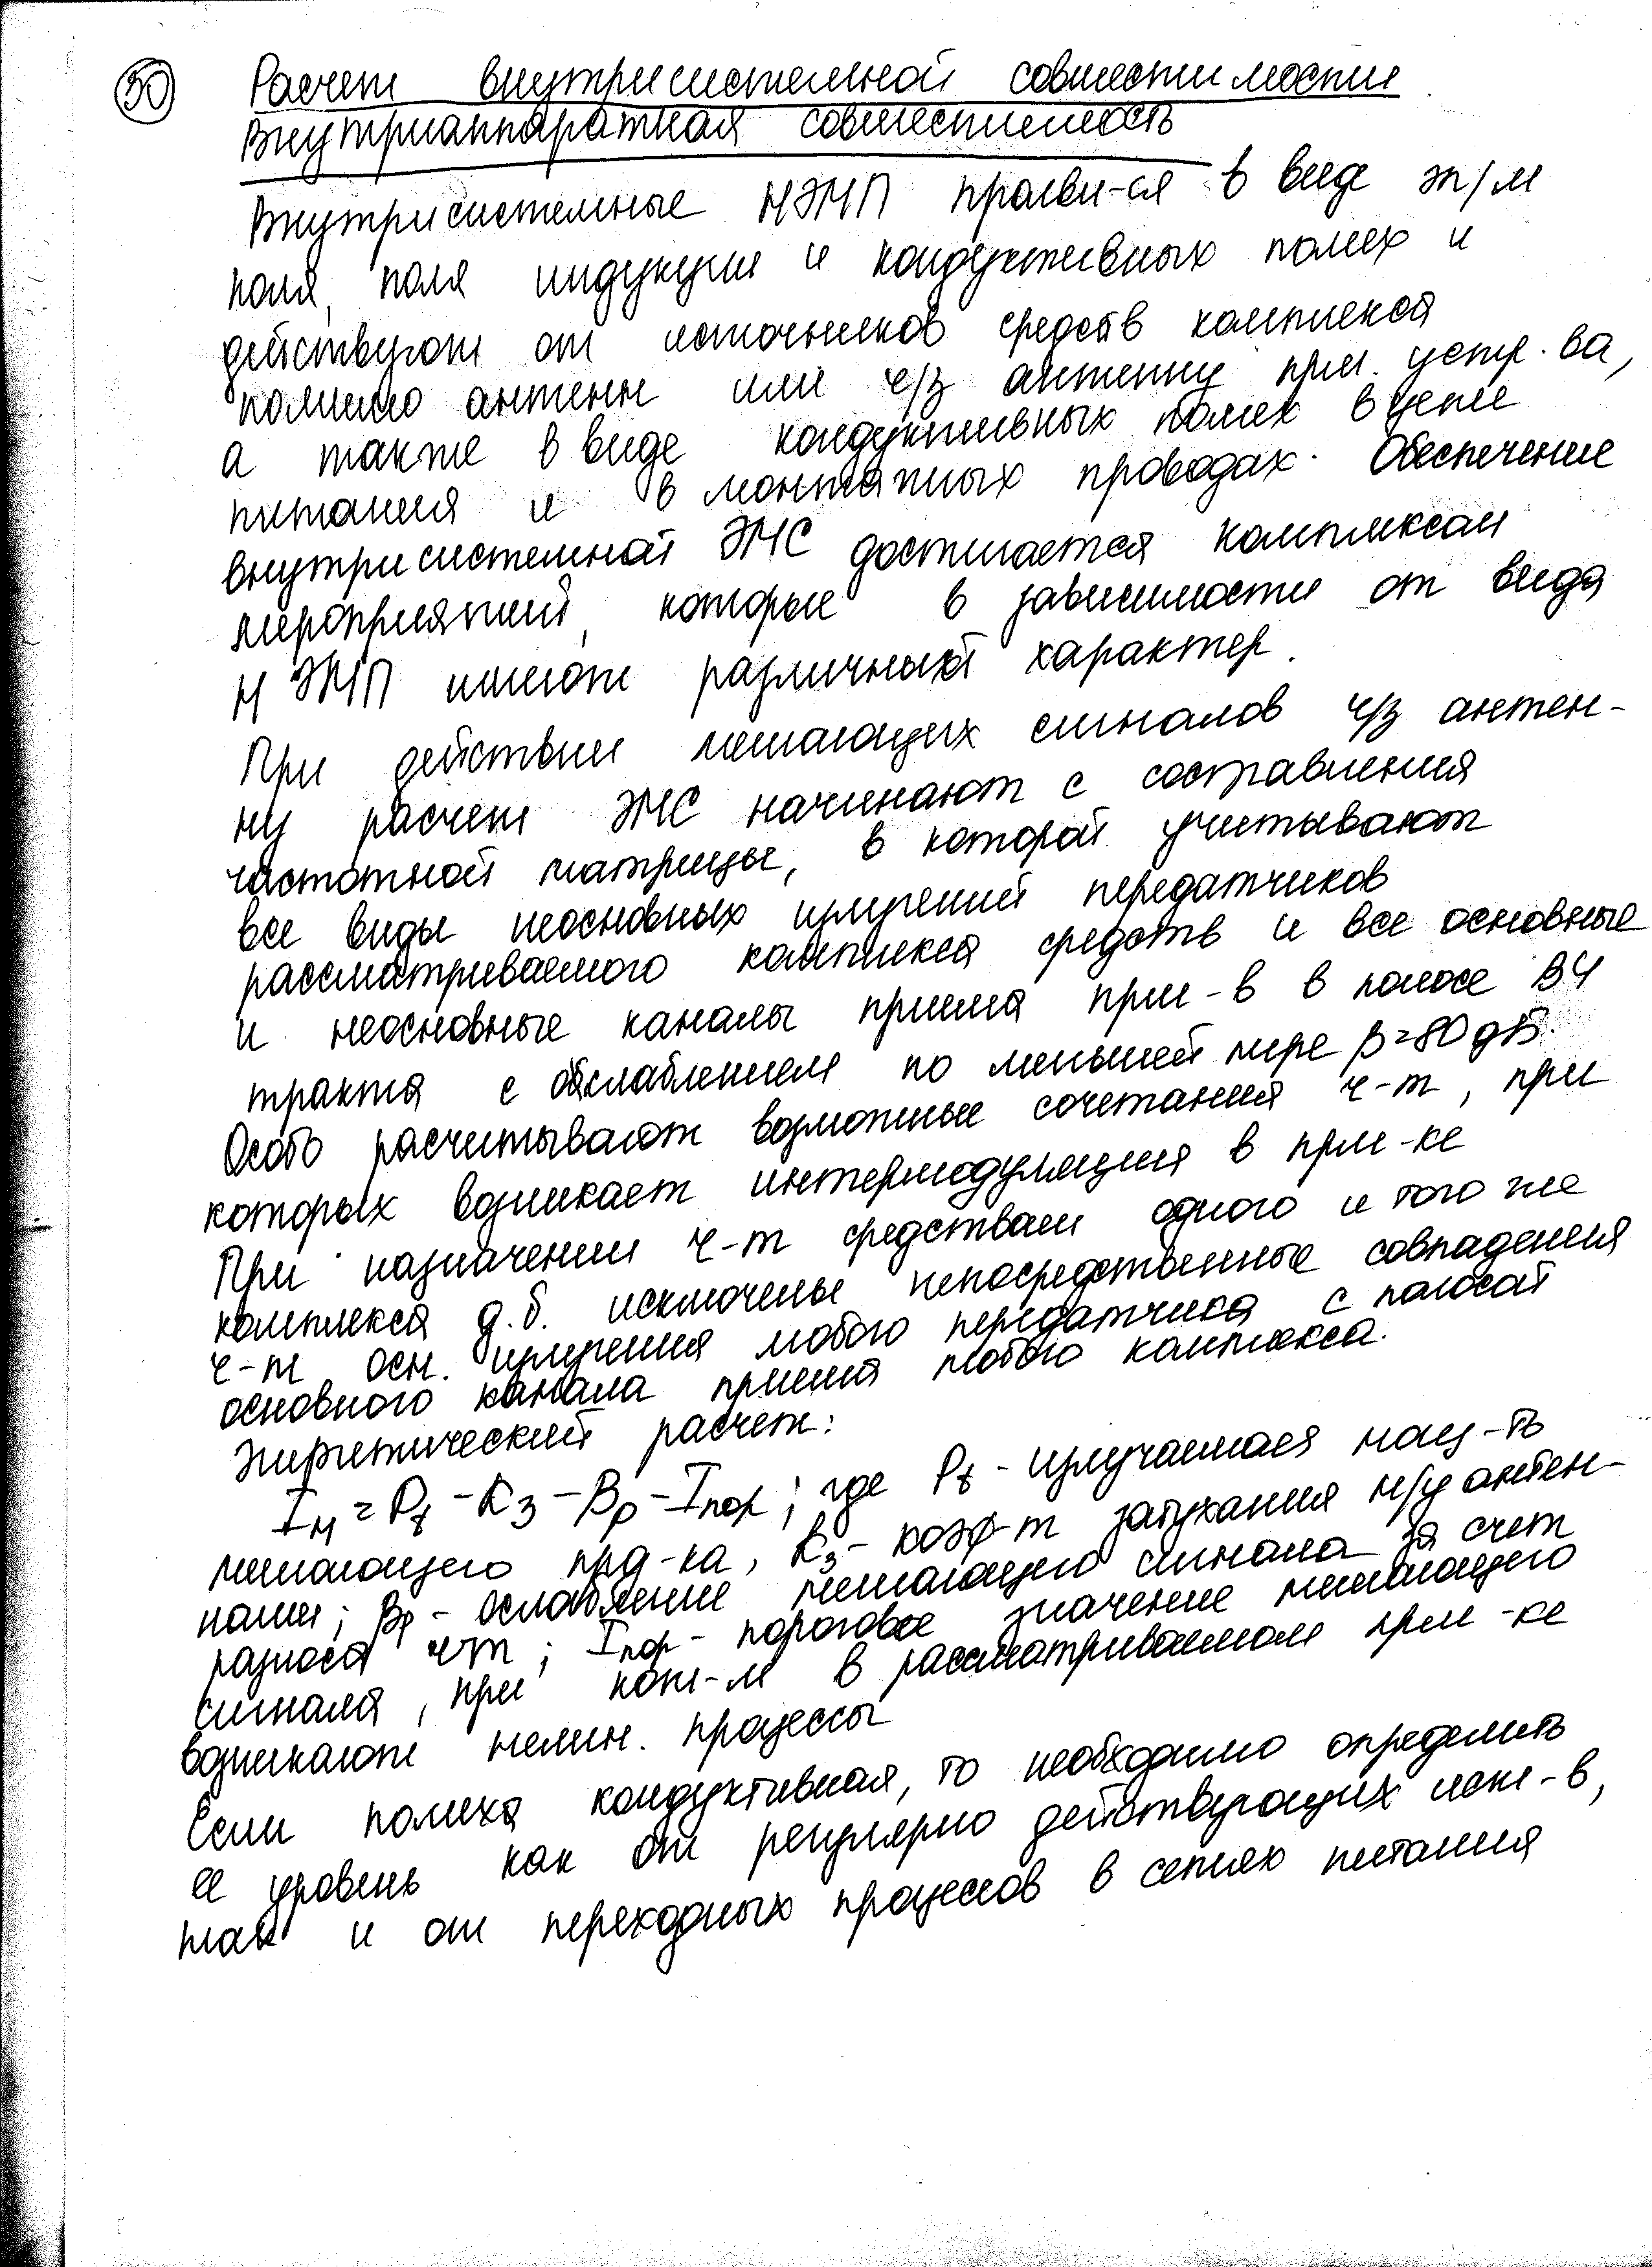 50 Расчет внутрисистемной совместимости
Внутриаппаратная совместимость
Внутрисистемные НЭМП прояви-ся в виде эл/м
поля, поля индукции и кондуктивных помех и
действуют от источников средств комплекса
помимо антенн или ч/з антенну прм. устр-ва,
а также в виде кондуктивных помех в цепи
питания и в монтажных проводах. Обеспечение
внутрисистемной ЭМС достигается комплексом
мероприятий, которые в зависимости от вида
НЭМП имеют различный характер.
При действии мешающих сигналов ч/з антен-
ну расчет ЭМС начинают с составления
частотной матрицы, в которой учитывают
все виды неосновных излучений передатчиков
рассматриваемого комплекса средств и все основные
и неосновные каналы приема прм-в в полосе ВЧ
тракта с ослаблением по меньшей мере β=80 дБ.
Особо расчитывают возможные сочетания ч-т, при
которых возникает интермодуляция в прм-ке
При назначении ч-т средствам одного и того же
комплекса д.б. исключены непосредственные совпадения
ч-т осн. излучения любого передатчика с полосой
основного канала приема любого комплекса.
Энергетический расчет:
Iм = Pt - Kз - Bр - Iпор; где Pt - излучаемая мощ-ть
мешающего прд-ка, Kз - коэф-т затухания м/у антен-
нами; Bр - ослабление мешающего сигнала за счет
разноса ч-т; Iпор - пороговое значение мешающего
сигнала, при кот-м в рассматриваемом прм-ке
возникают нелин. процессы
Если помеха кондуктивная, то необходимо определить
ее уровень как от регулярно действующих ист-в,
так и от переходных процессов в сетях питания